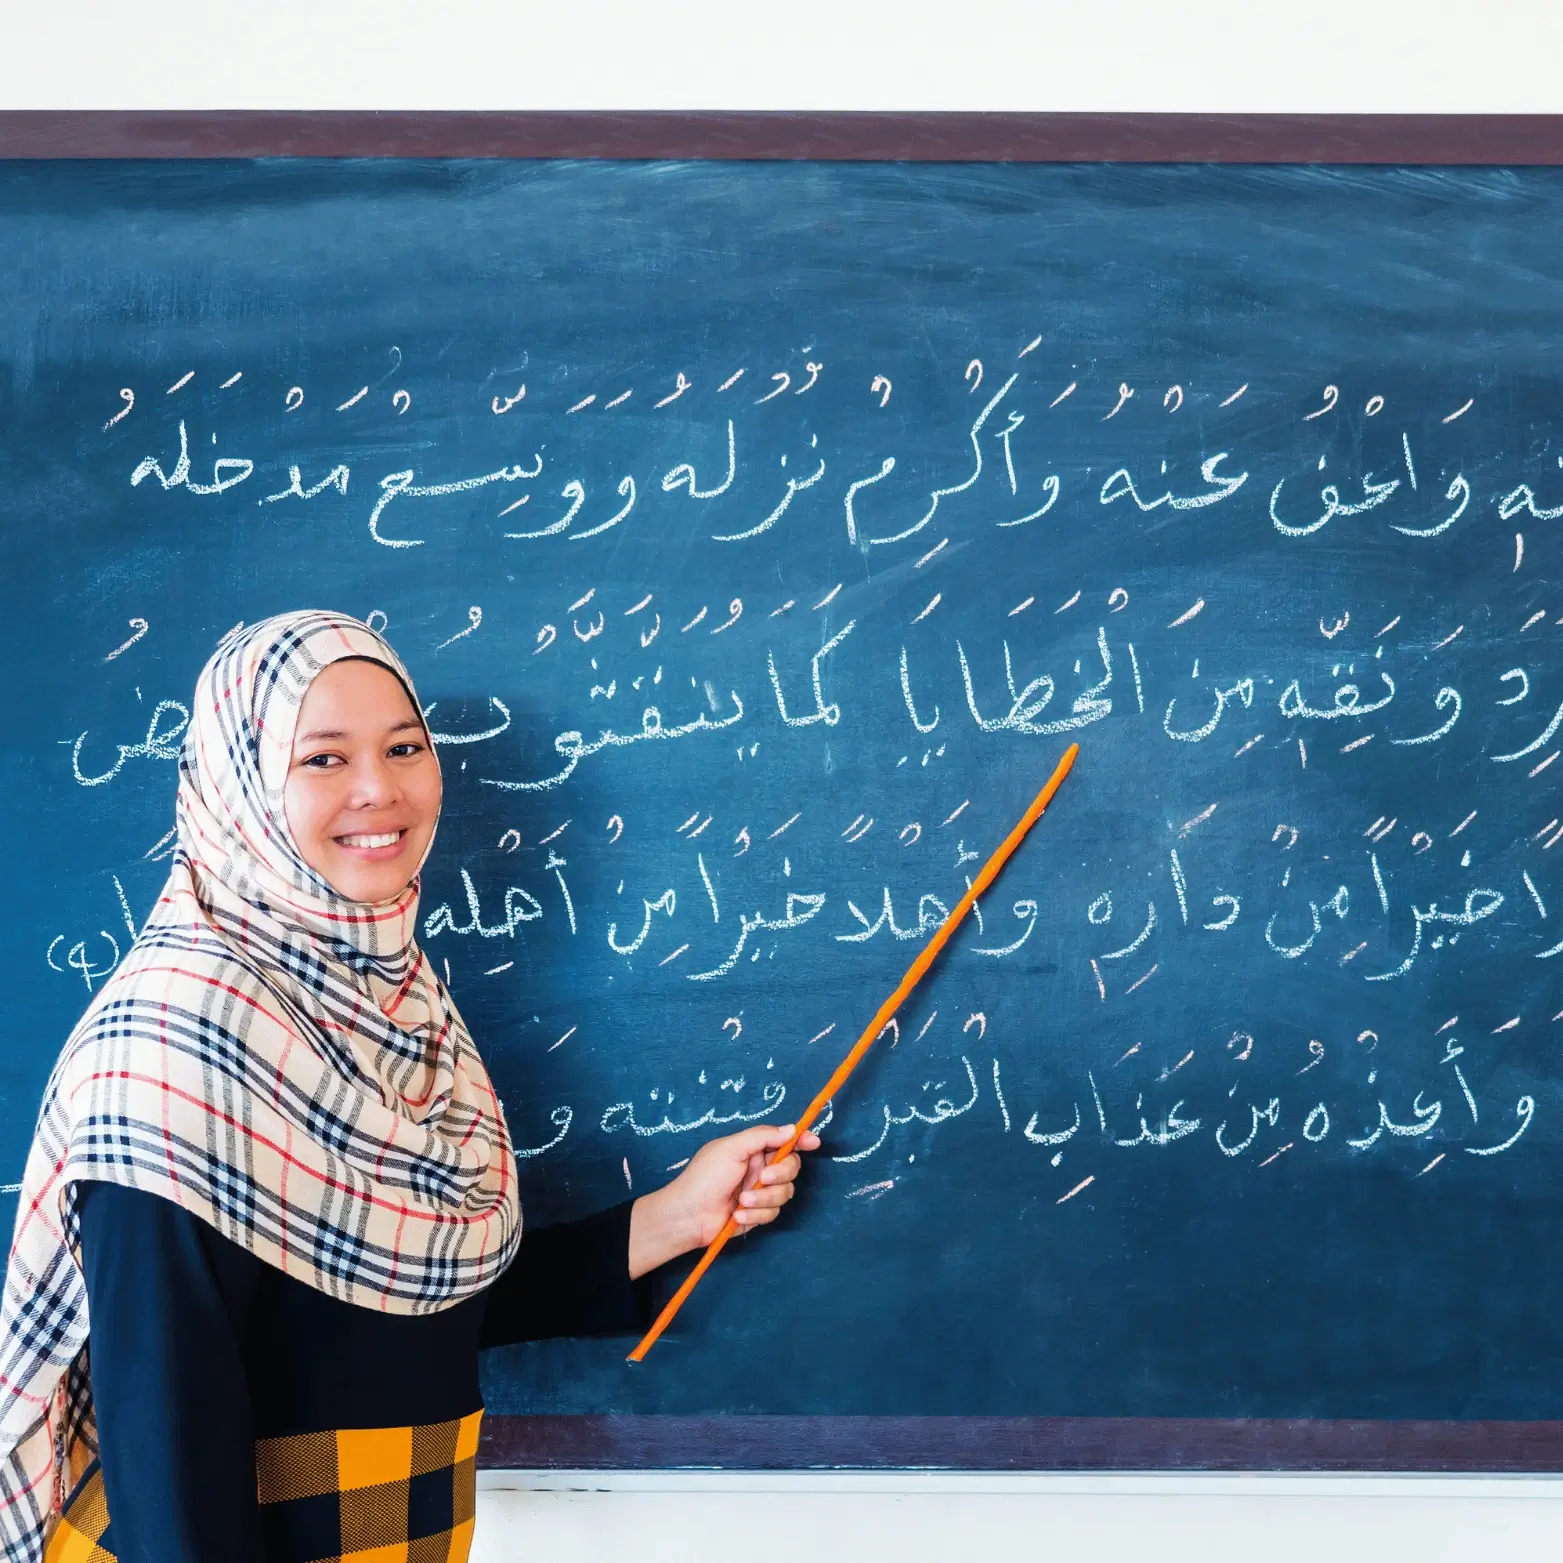 وَاعْفُ عَنْهُ وَأَكْرِمْ نُزُلَهُ وَوَسِّعْ مَدْخَلَهُ
وَنَقِّهِ مِنَ الْخَطَايَا كَمَا
خَيْرًا مِنْ دَارِهِ وَأَهْلًا خَيْرًا مِنْ أَهْلِهِ
وَأَعِذْهُ مِنْ عَذَابِ الْقَبْرِ وَفِتْنَتِهِ وَ